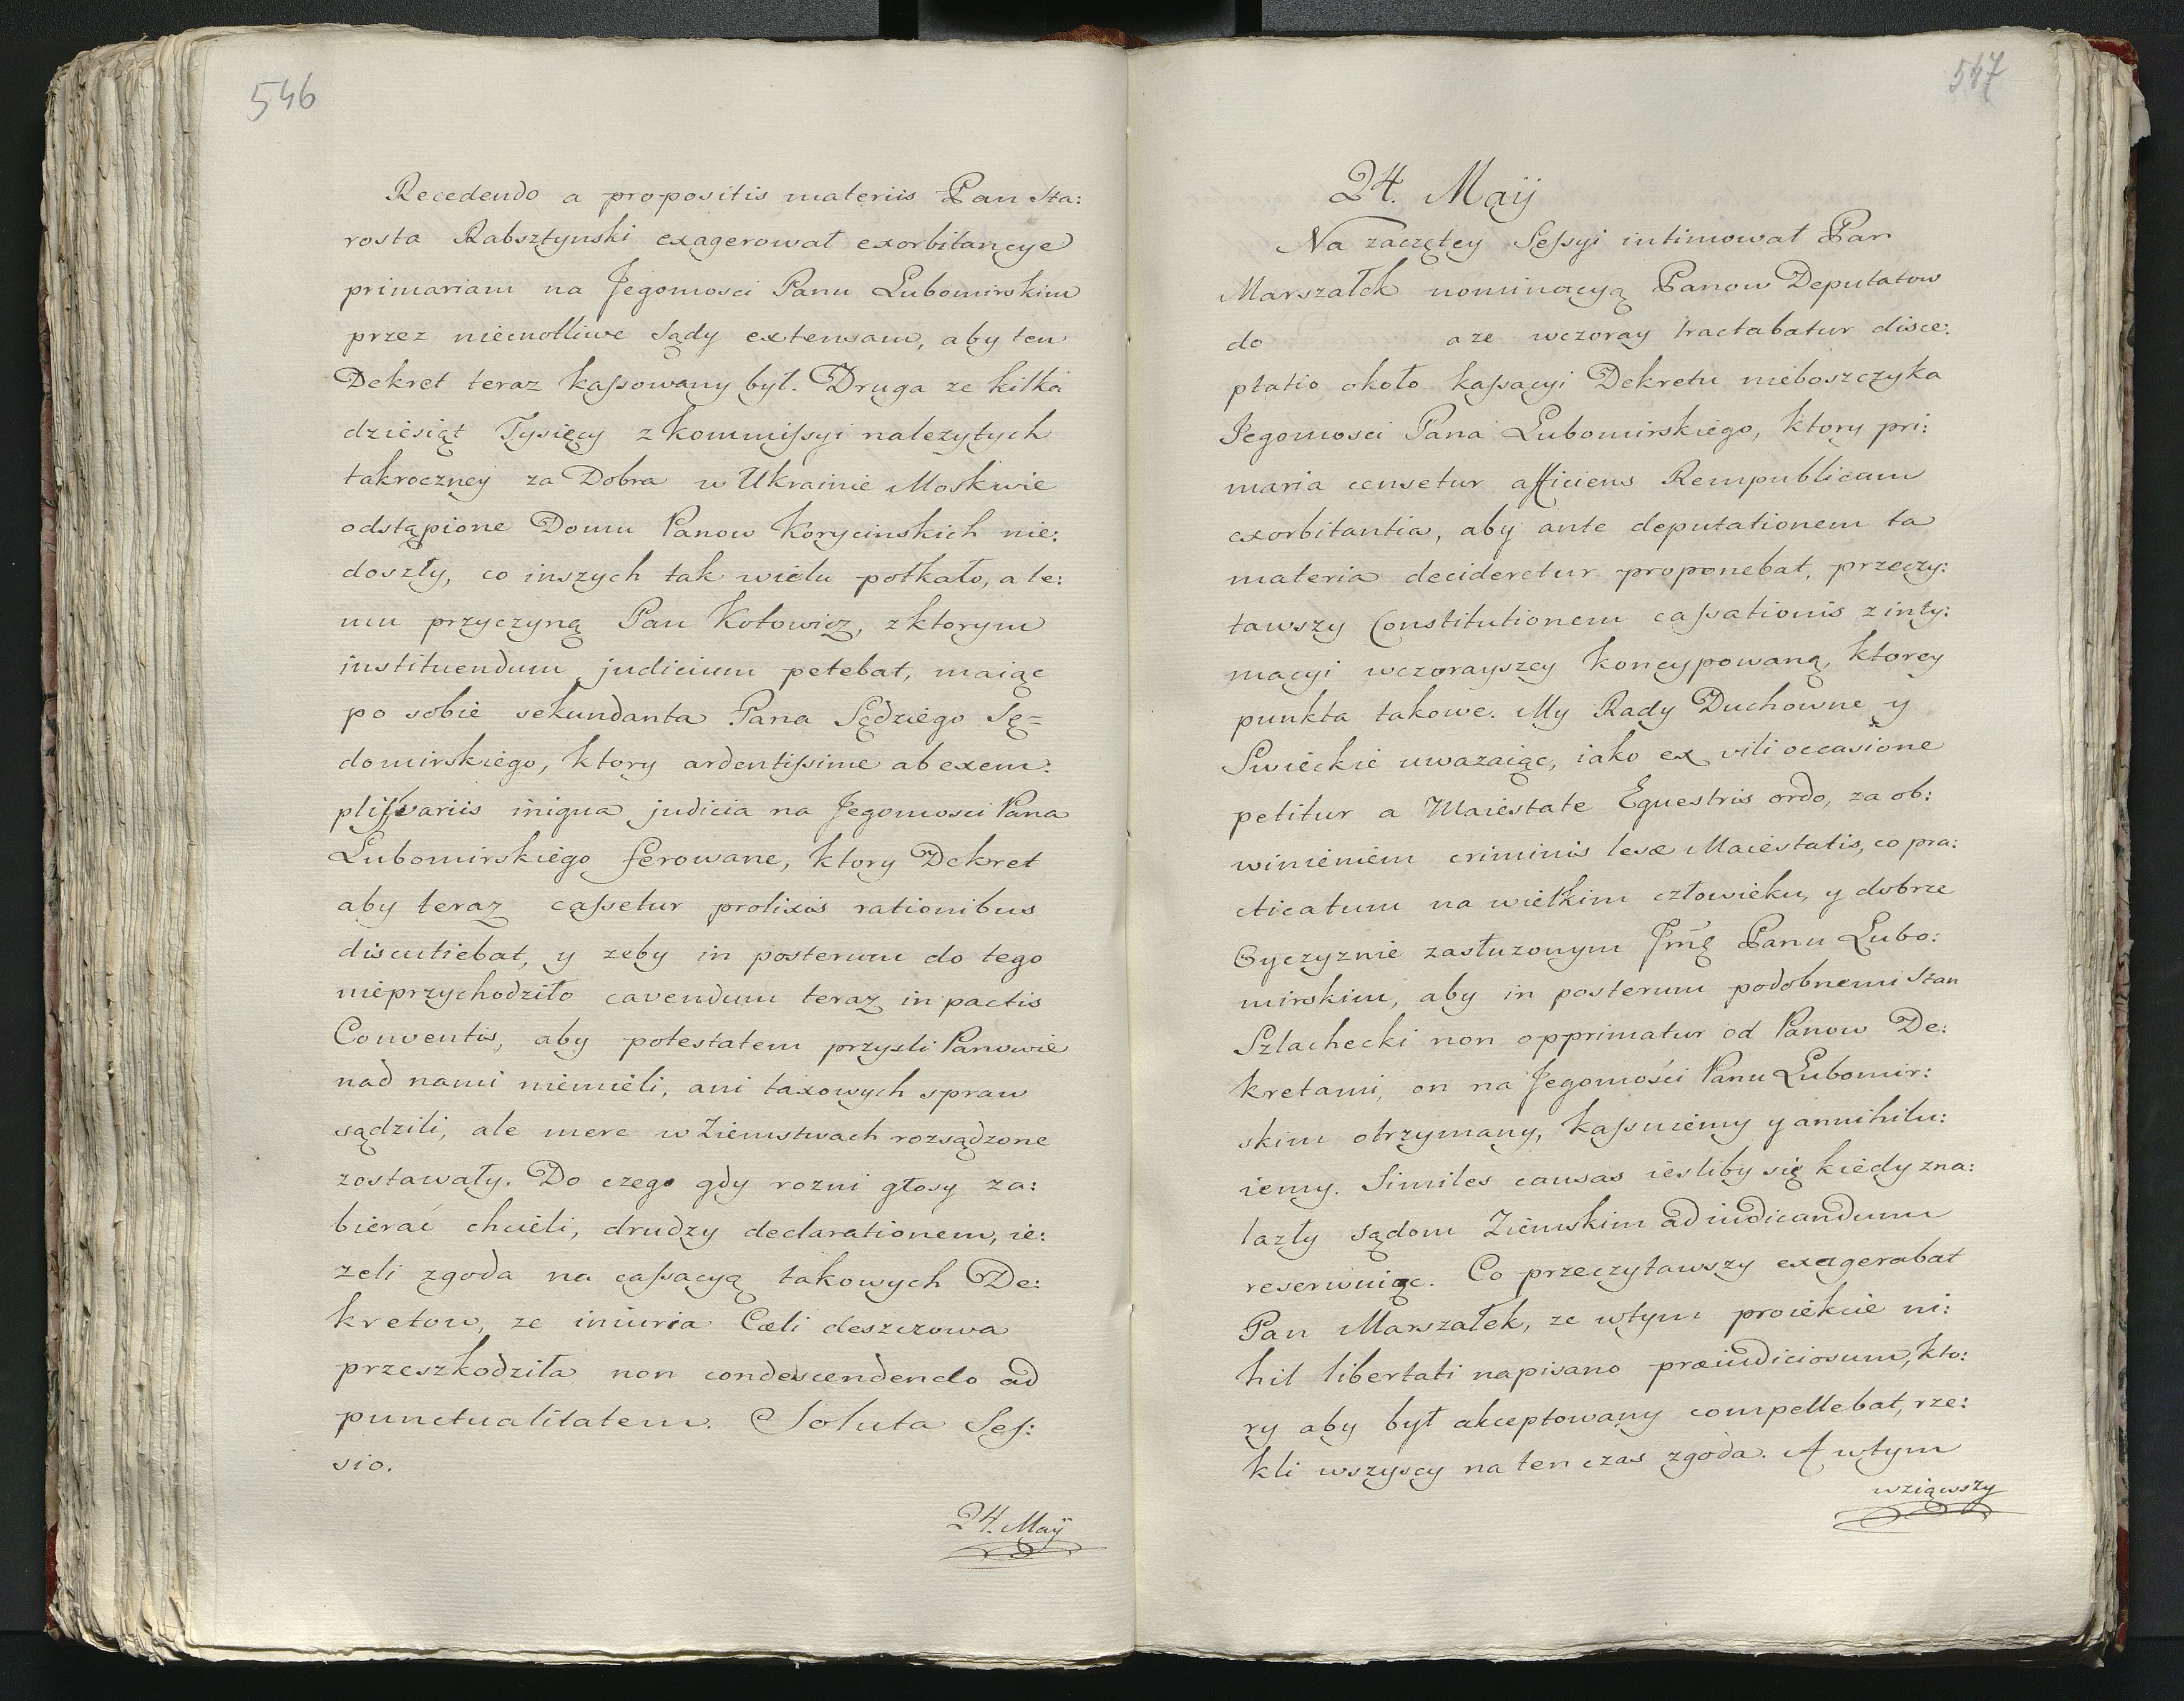 546
Recedendo a propositis materiis Pan Sta:
rosta Rabsztynski exagerował exorbitancye
primariam na Jegomosci Panu Lubomirskim
przez niecnotliwe sądy extensam, aby ten
Dekret teraz kaſsowany był. Druga ze kilka
dziesiąt Tysięcy z kommiſsyi należytych
takroczney za Dobra w Ukrainie Moskwie
odstąpione Domu Panow Korycinskich nie:
doszły, co inszych tak wielu potkało, a te:
mu przyczyną Pan Kotowicz, z ktorym
instituendum judicium petebat, maiąc
po sobie sekundanta Pana Sędziego Sę=
domirskiego, ktory ardentiſsime ab exem:
pliſvariis iniqua judicia na Jegomosci Pana
Lubomirskiego ferowane, ktory Dekret
aby teraz caſsetur prolixis rationibus
discutiebat, y zeby in posterum do tego
nieprzychodziło cavendum teraz in pactis
Conventis, aby potestatem przyszli Panowie
nad nami niemieli, ani taxowych spraw
sądzili, ale mere w Ziemstwach rozsądzone
zostawały. Do czego gdy rozni głosy za:
bierać chcieli, drudzy declarationem, ie:
zeli zgoda na caſsacyą takowych De:
kretow, ze iniuria Cœli deszczowa
przeszkodziła non condescendendo ad
punctualitatem. Soluta Seſ:
sio.
24. Maÿ
547
24. Maÿ
Na zaczętey Seſsyi intimował Pan
Marszałek nominacyą Panow Deputatow
do a ze wczoray tractabatur disce:
ptatio około kaſsacyi Dekretu nieboszczyka
Jegomosci Pana Lubomirskiego, ktory pri:
maria censetur afficiens Rempublicam
exorbitantia, aby ante deputationem ta
materia decideretur proponebat, przeczy:
tawszy Constitutionem caſsationis z inty:
macyi wczorayszey koncypowaną, ktorey
punkta takowe. My Rady Duchowne y
Swieckie uwazaiąc, iako ex vili occasione
petitur a Maiestate Equestris ordo, za ob:
winieniem criminis lesæ Maiestatis, co pra:
cticatum na wielkim człowieku, y dobrze
Oyczyznie zasłuzonym Jm̃ę Panu Lubo:
mirskim, aby in posterum podobnemi Stan
Szlachecki non opprimatur od Panow De:
kretami, on na Jegomości Panu Lubomir:
skim otrzymany, kaſsuiemy y annihilu:
iemy. Similes causas iesliby się kiedy zna:
lazły sądom Ziemskim adiudicandum
reserwuiąc. Co przeczytawszy exagerabat
Pan Marszałek, ze w tym proiekcie ni:
hil libertati napisano præiudiciosum, kto:
ry aby był akceptowany compellebat, rze:
kli wszyscy na ten czas zgoda. A w tym
wziąwszy